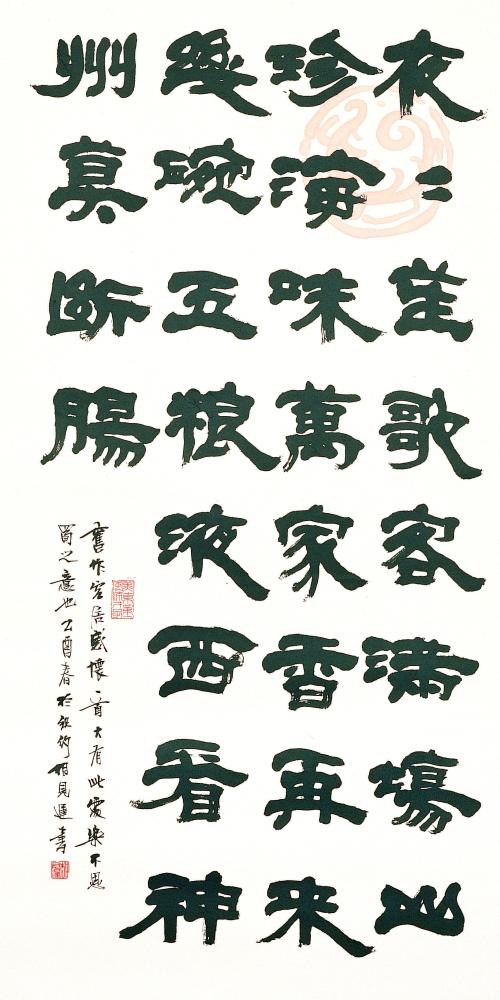 夜二笙歌客滿場山
珍海味萬家香再来
幾碗五粮液西看神
州莫断腸
舊作客居感懷一首大有此處樂不思
蜀之意也乙酉春於